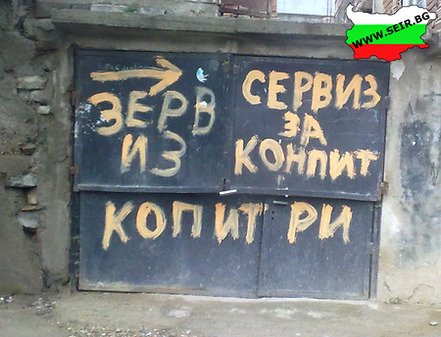 WWW.SEIR.BG
ЗЕРВ
ИЗ
СЕРВИЗ
ЗА
КОНПИТ
КОПИТ РИ